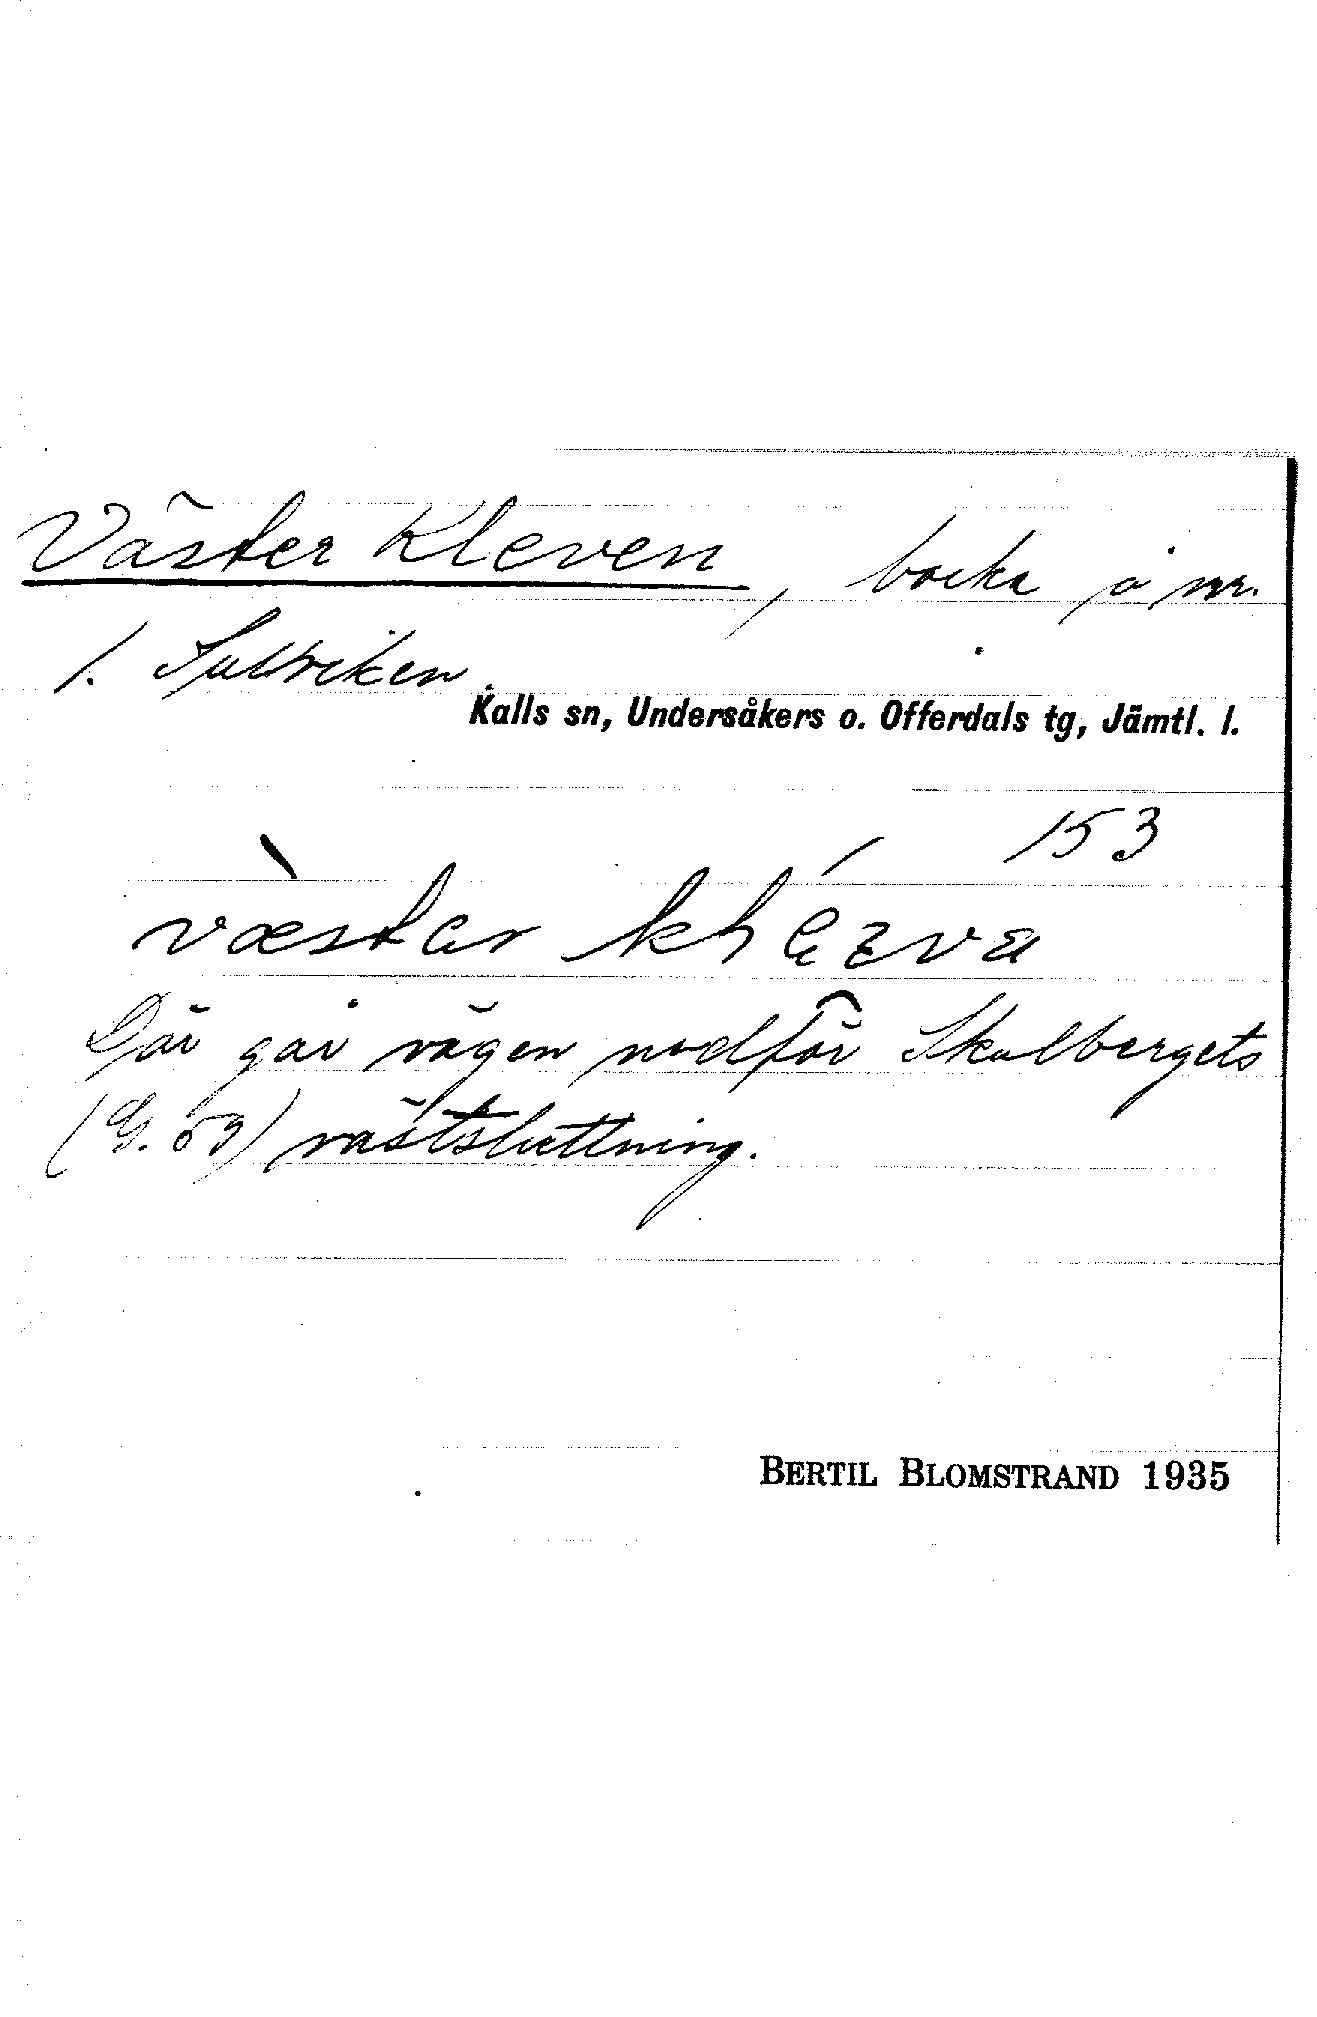 Väster Kleven, backe å nr.
1. Sulviken.
Kalls sn, Undersåkers o. Offerdals tg, Jämtl. l.
153
væstar
Där går vägen nedför Skalbergets
(G. 59) västsluttning.
BERTIL BLOMSTRAND 1935